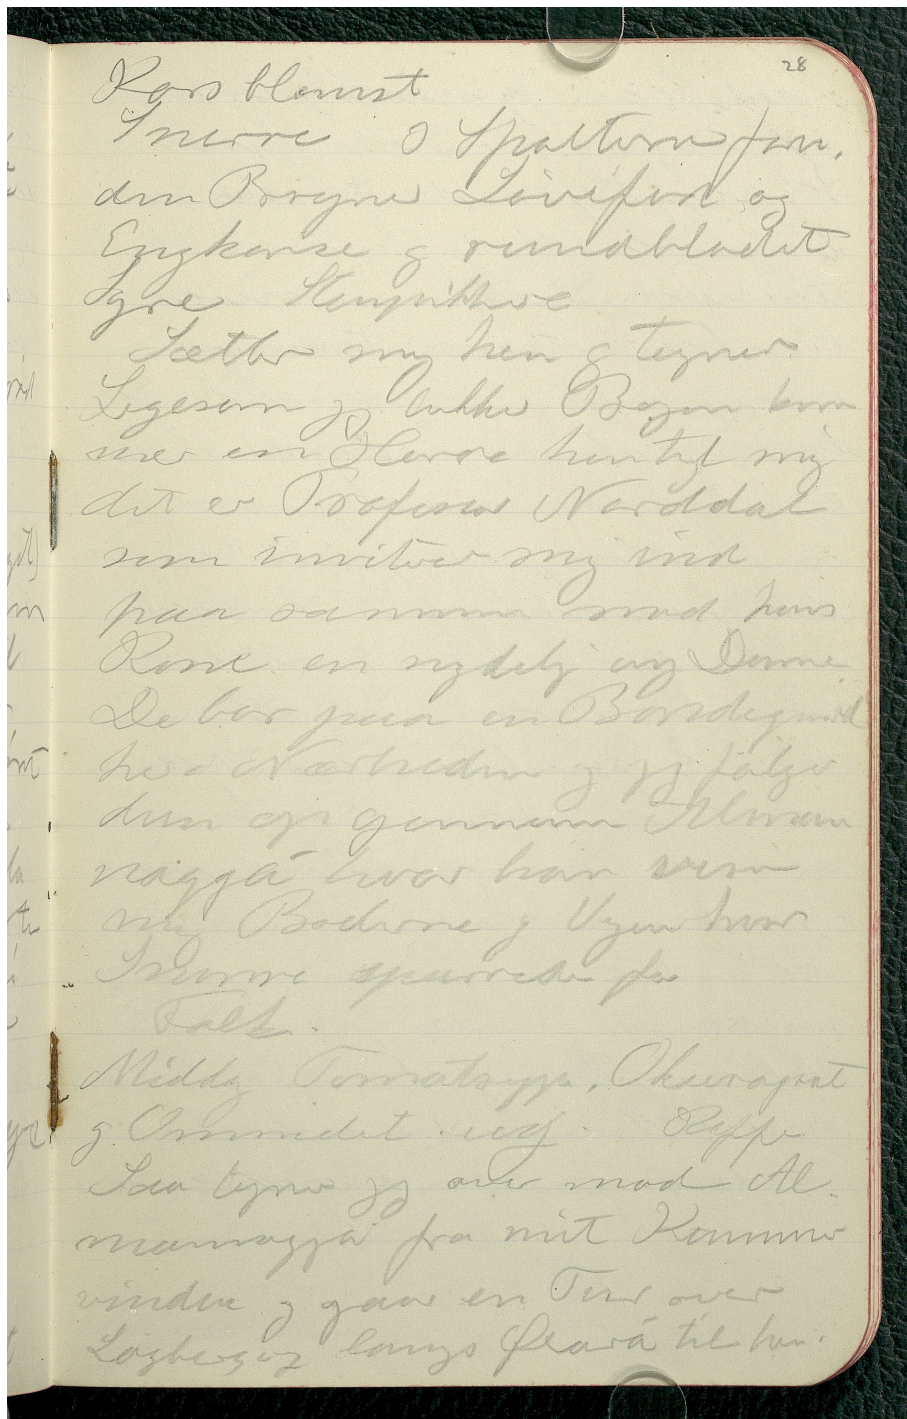 28
Korsblomst
Snerre I Spalterne fin.
den Bregne Løvefod og
Engkarse g rundbladet
Syre Stenpikkere
Sætter mig hen g tegner
Ligesom jeg lukker Bogen kom
mer en Herre hen til mig
det er Profesor Norddal
som inviterer mig ind
paa sammen med hans
Kone en nydelig ung Dame
De bor paa en Bondegaard
her i Nærheden g jeg følger
dem op gennem Alman
naggjá hvor han viser
mig Boderne g Vejen hvor
Snorre spærrede for
Folk.
Middg Tomatsuppe, Oksesteg
g Kaffe
Saa tegner jeg over mod Al.
mannagjá fra mit Kammer
vindue g gaar en Tur over
Lögberg og langs Øxará til hen.